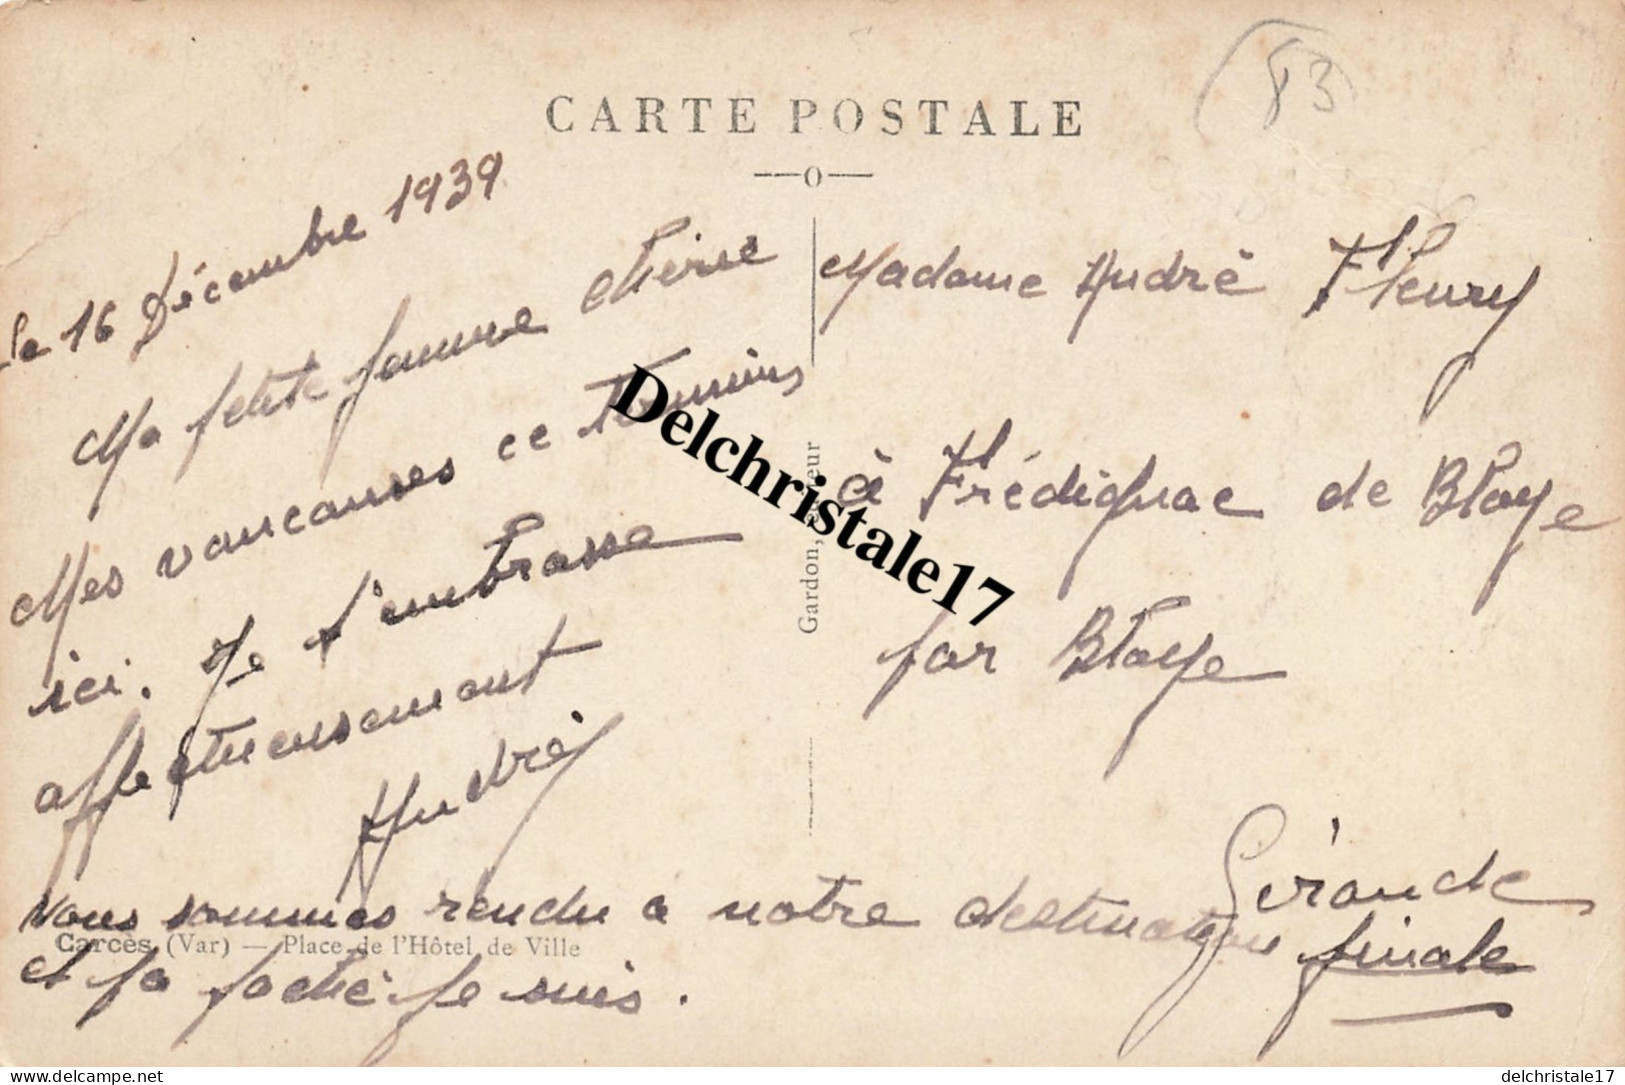 CARTE POSTALE
83
Le 16 Décembre 1939
Ma petite femme chérie
Mes vancanses ce termine
ici. Je t'embrasse
affectueusement
André
nous sommes rendu a notre destination finale
et fa je suis.
Carcès (Var) — Place de l'Hôtel de Ville
Madame André Fleury
à Frédignac de Blaye
par Blaye
Gironde
Gardon, éditeur
Delchristale17
delcampe.net
delchristale17